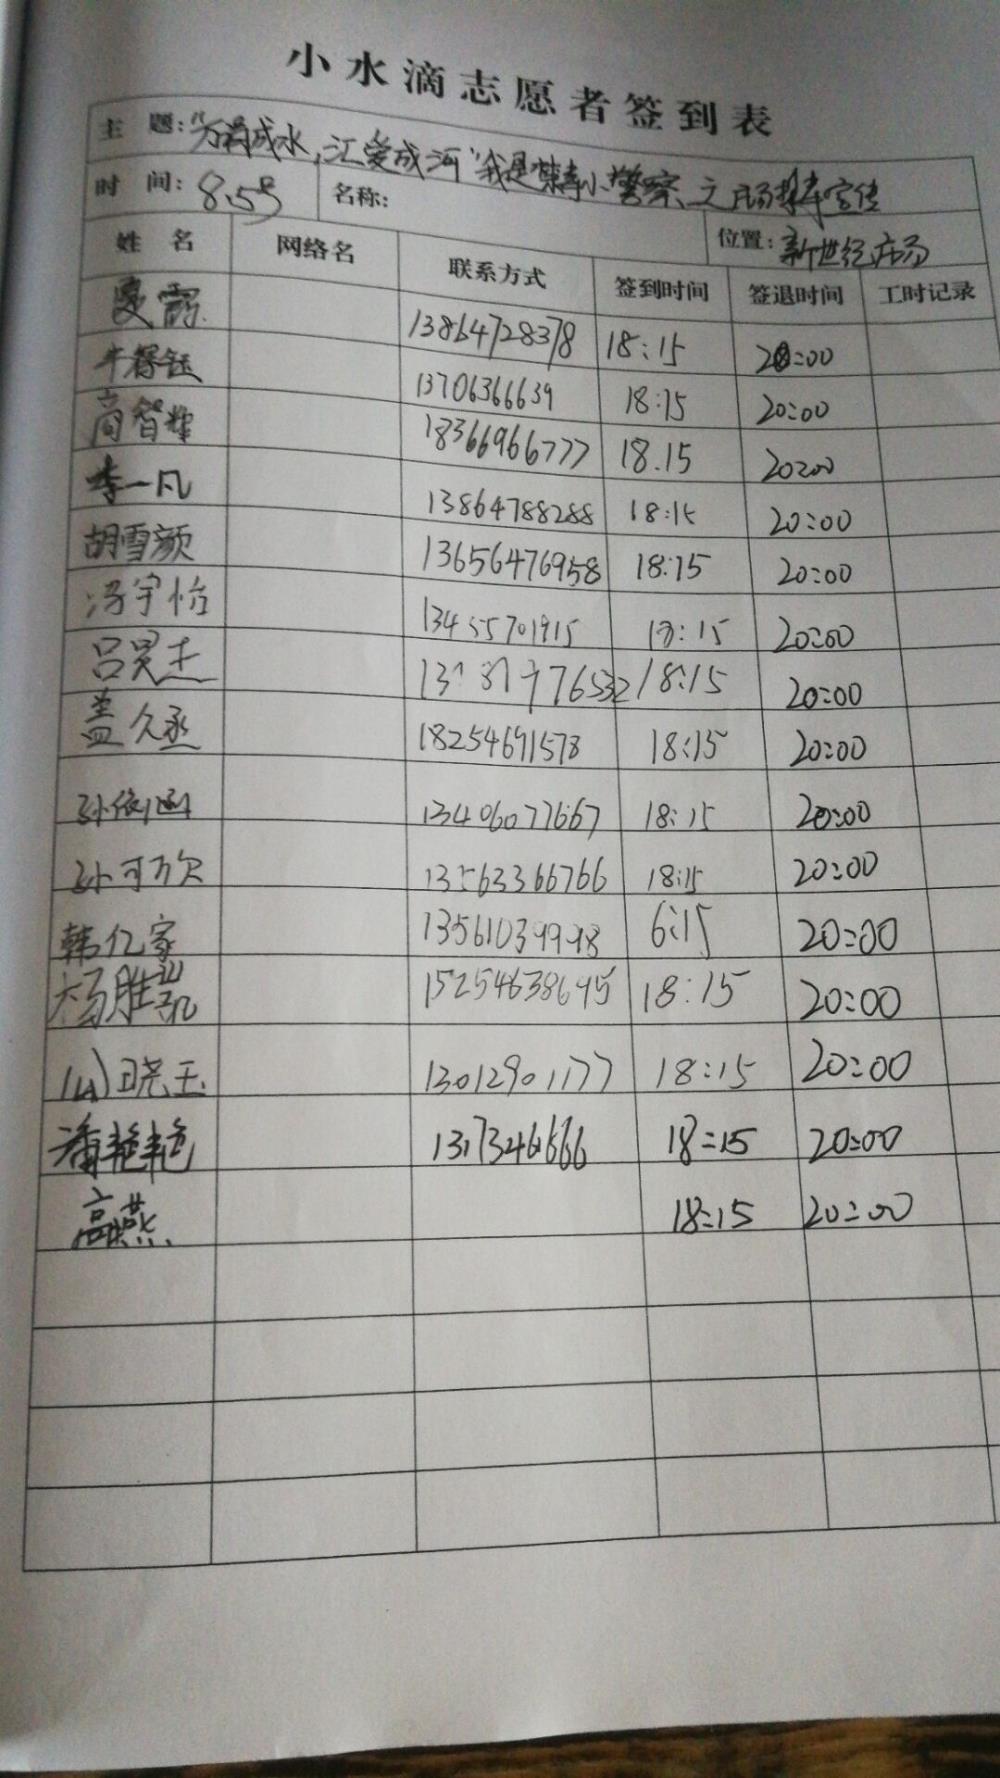 小水滴志愿者签到表
主 题：“万涓成水，汇爱成河”我是禁毒小警察、之广场禁毒宣传
时 间：8.5号 名称： 位置：新世纪广场
姓 名 网络名 联系方式 签到时间 签退时间 工时记录
夏霞 13864728378 18:15 20:00
13706366639 18:15 20:00
高智辉 18366966777 18.15 20:00
李一凡 13864788288 18:15 20:00
胡雪颜 13656476958 18:15 20:00
冯宇怡 13455701915 18:15 20:00
吕昊杰 18:15 20:00
盖久丞 18254691578 18:15 20:00
孙依涵 13406077667 18:15 20:00
孙可欣 13563366766 18:15 20:00
韩亿家 13561039998 6:15 20:00
杨胜凯 15254638695 18:15 20:00
山晓玉 13012901177 18:15 20:00
潘艳艳 18:15 20:00
高燕 18:15 20:00